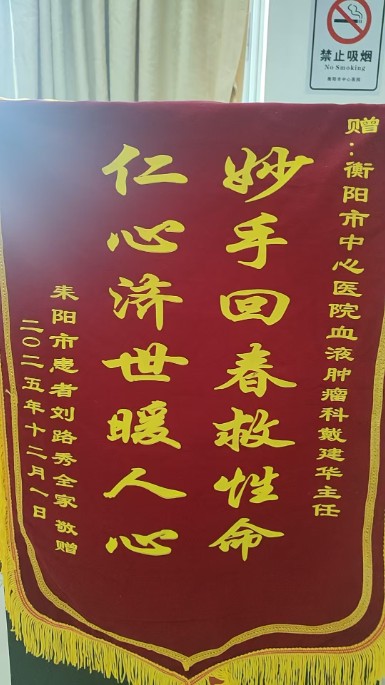 禁止吸烟
No Smoking
衡阳市中心医院
赠：衡阳市中心医院血液肿瘤科戴建华主任
妙手回春救性命
仁心济世暖人心
耒阳市患者刘路秀全家敬赠
二〇二五年十二月一日